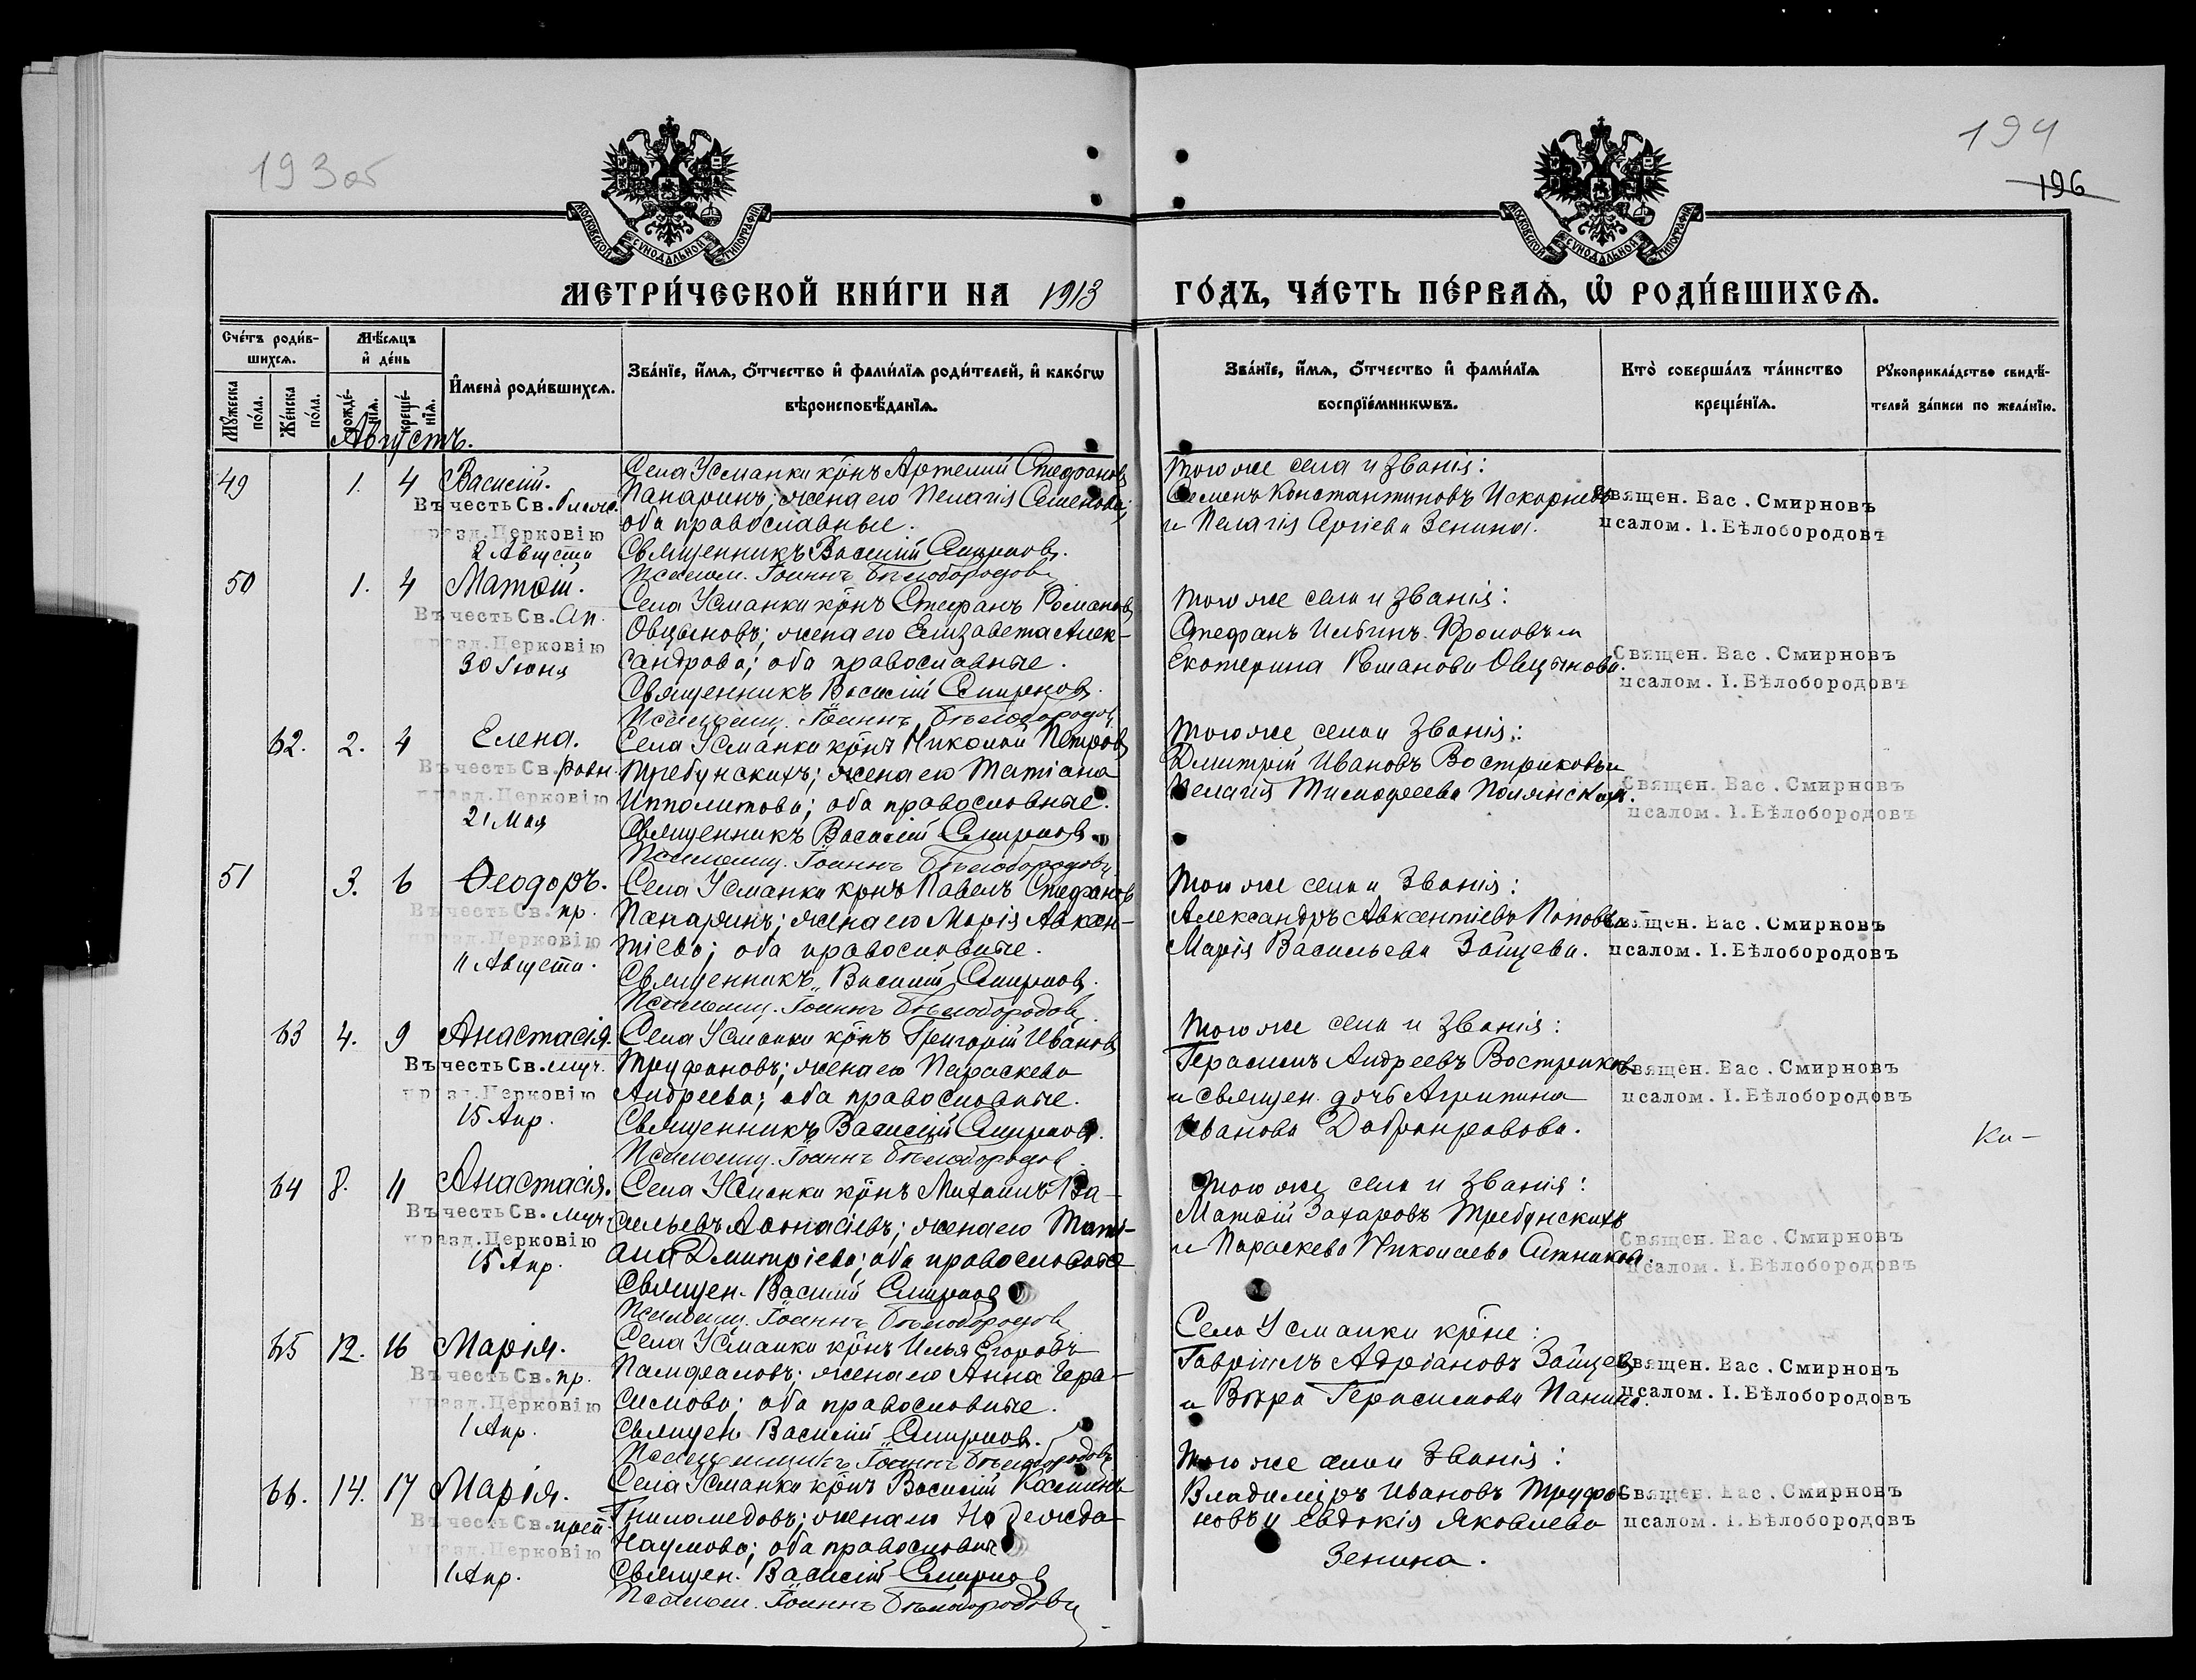 193об
194
196
МОСКОВСКОЙ СУНОДАЛЬНОЙ ТИПОГРАФІИ
МОСКОВСКОЙ СУНОДАЛЬНОЙ ТИПОГРАФІИ
МЕТРИ́ЧЕСКОЙ КНИ́ГИ НА 1913 ГО́ДЪ, ЧА́СТЬ ПЕ́РВАѦ, Ѡ҆ РОДИ́ВШИХСѦ.
Сче́тъ роди́в-
шихсѧ.
Мꙋ́жеска по́ла.
Же́нска по́ла.
Мѣ́сѧцъ
и҆ де́нь
рожде́-
нїѧ.
креще́-
нїѧ.
И҆мена̀ роди́вшихсѧ.
Зва́нїе, и҆́мѧ, ѻ҆́тчество и҆ фами́лїѧ роди́телей, и҆ како́гѡ
вѣроисповѣ́данїѧ.
Зва́нїе, и҆́мѧ, ѻ҆́тчество и҆ фами́лїѧ
воспрїе́мникѡвъ.
Кто̀ соверша́лъ та́инство
креще́нїѧ.
Рꙋкоприкла́дство свидѣ́-
телей за́писи по жела́нїю.
Августъ.
49 1. 4 Василій.
Въ честь Св. блаж.
празд. Церковію
2 Августа
Села Усманки крнъ Артемій Стефановъ
Панаринъ; жена его Пелагія Семенова;
оба православные.
Священникъ Василій Смирновъ.
Псалом. Іоаннъ Бѣлобородовъ
Того же села и званія:
Семенъ Константиновъ Искорневъ
и Пелагія Сргіева Зенина.
Священ. Вас. Смирновъ
псалом. І. Бѣлобородовъ
50 1. 4 Матѳій.
Въ честь Св. Ап.
празд. Церковію
30 Іюня
Села Усманки крнъ Стефанъ Романовъ
Овцыновъ; жена его Елизавета Алек-
сандрова; оба православные.
Священникъ Василій Смирновъ.
Псаломщ. Іоаннъ Бѣлобородовъ
Того же села и званія:
Стефанъ Ильинъ Фроловъ и
Екатерина Романова Овцынова.
Священ. Вас. Смирновъ
псалом. І. Бѣлобородовъ
62. 2. 4 Елена.
Въ честь Св. равн.
празд. Церковію
21 Мая
Села Усманки крнъ Николай Петровъ
Требунскихъ; жена его Татіана
Ипполитова; оба православные.
Священникъ Василій Смирновъ
Псаломщ. Іоаннъ Бѣлобородовъ
Того же села и званія:
Дмитрій Ивановъ Востриковъ и
Пелагія Тимоѳеева Полянская.
Священ. Вас. Смирновъ
псалом. І. Бѣлобородовъ
51 3. 6 Ѳеодоръ.
Въ честь Св. пр.
празд. Церковію
11 Августа.
Села Усманки крнъ Павелъ Стефановъ
Панаринъ; жена его Марія Авксен-
тіева; оба православные.
Священникъ Василій Смирновъ.
Псаломщ. Іоаннъ Бѣлобородовъ
Того же села и званія:
Александръ Авксентіевъ Поповъ и
Марія Васильева Зайцева.
Священ. Вас. Смирновъ
псалом. І. Бѣлобородовъ
63 4. 9 Анастасія.
Въ честь Св. муч.
празд. Церковію
15 Апр.
Села Усманки крнъ Григорій Ивановъ
Труфановъ; жена его Параскева
Андреева; оба православные.
Священникъ Василій Смирновъ.
Псаломщ. Іоаннъ Бѣлобородовъ
Того же села и званія:
Герасимъ Андреевъ Востриковъ
и священ. дочь Агрипина
Иванова Добронравова.
Священ. Вас. Смирновъ
псалом. І. Бѣлобородовъ
64 8. 11 Анастасія.
Въ честь Св. муч.
празд. Церковію
15 Апр.
Села Усманки крнъ Михаилъ Ва-
сильевъ Аѳонасіевъ; жена его Тати-
ана Дмитріева; оба православные
Священ. Василій Смирновъ
Псаломщ. Іоаннъ Бѣлобородовъ
Того же села и званія:
Матѳій Захаровъ Требунскихъ
и Параскева Николаева Ситникова.
Священ. Вас. Смирновъ
псалом. І. Бѣлобородовъ
65 12. 16 Марія.
Въ честь Св. пр.
празд. Церковію
1 Апр.
Села Усманки крнъ Илья Егоровъ
Памфиловъ; жена его Анна Гера-
симова; оба православные.
Священ Василій Смирновъ.
Псаломщикъ Іоаннъ Бѣлобородовъ
Села Усманки крне:
Гавріилъ Адріановъ Зайцевъ
и Вѣра Герасимова Панина.
Священ. Вас. Смирновъ
псалом. І. Бѣлобородовъ
66. 14. 17 Марія.
Въ честь Св. преп.
празд. Церковію
1 Апр.
Села Усманки крнъ Василій Косминъ
Гниломедовъ; жена его Надежда
Наумова; оба православные
Священ. Василій Смирновъ
Псалом. Іоаннъ Бѣлобородовъ
Того же села и званія:
Владиміръ Ивановъ Труфа-
новъ и Евдокія Яковлева
Зенина.
Священ. Вас. Смирновъ
псалом. І. Бѣлобородовъ